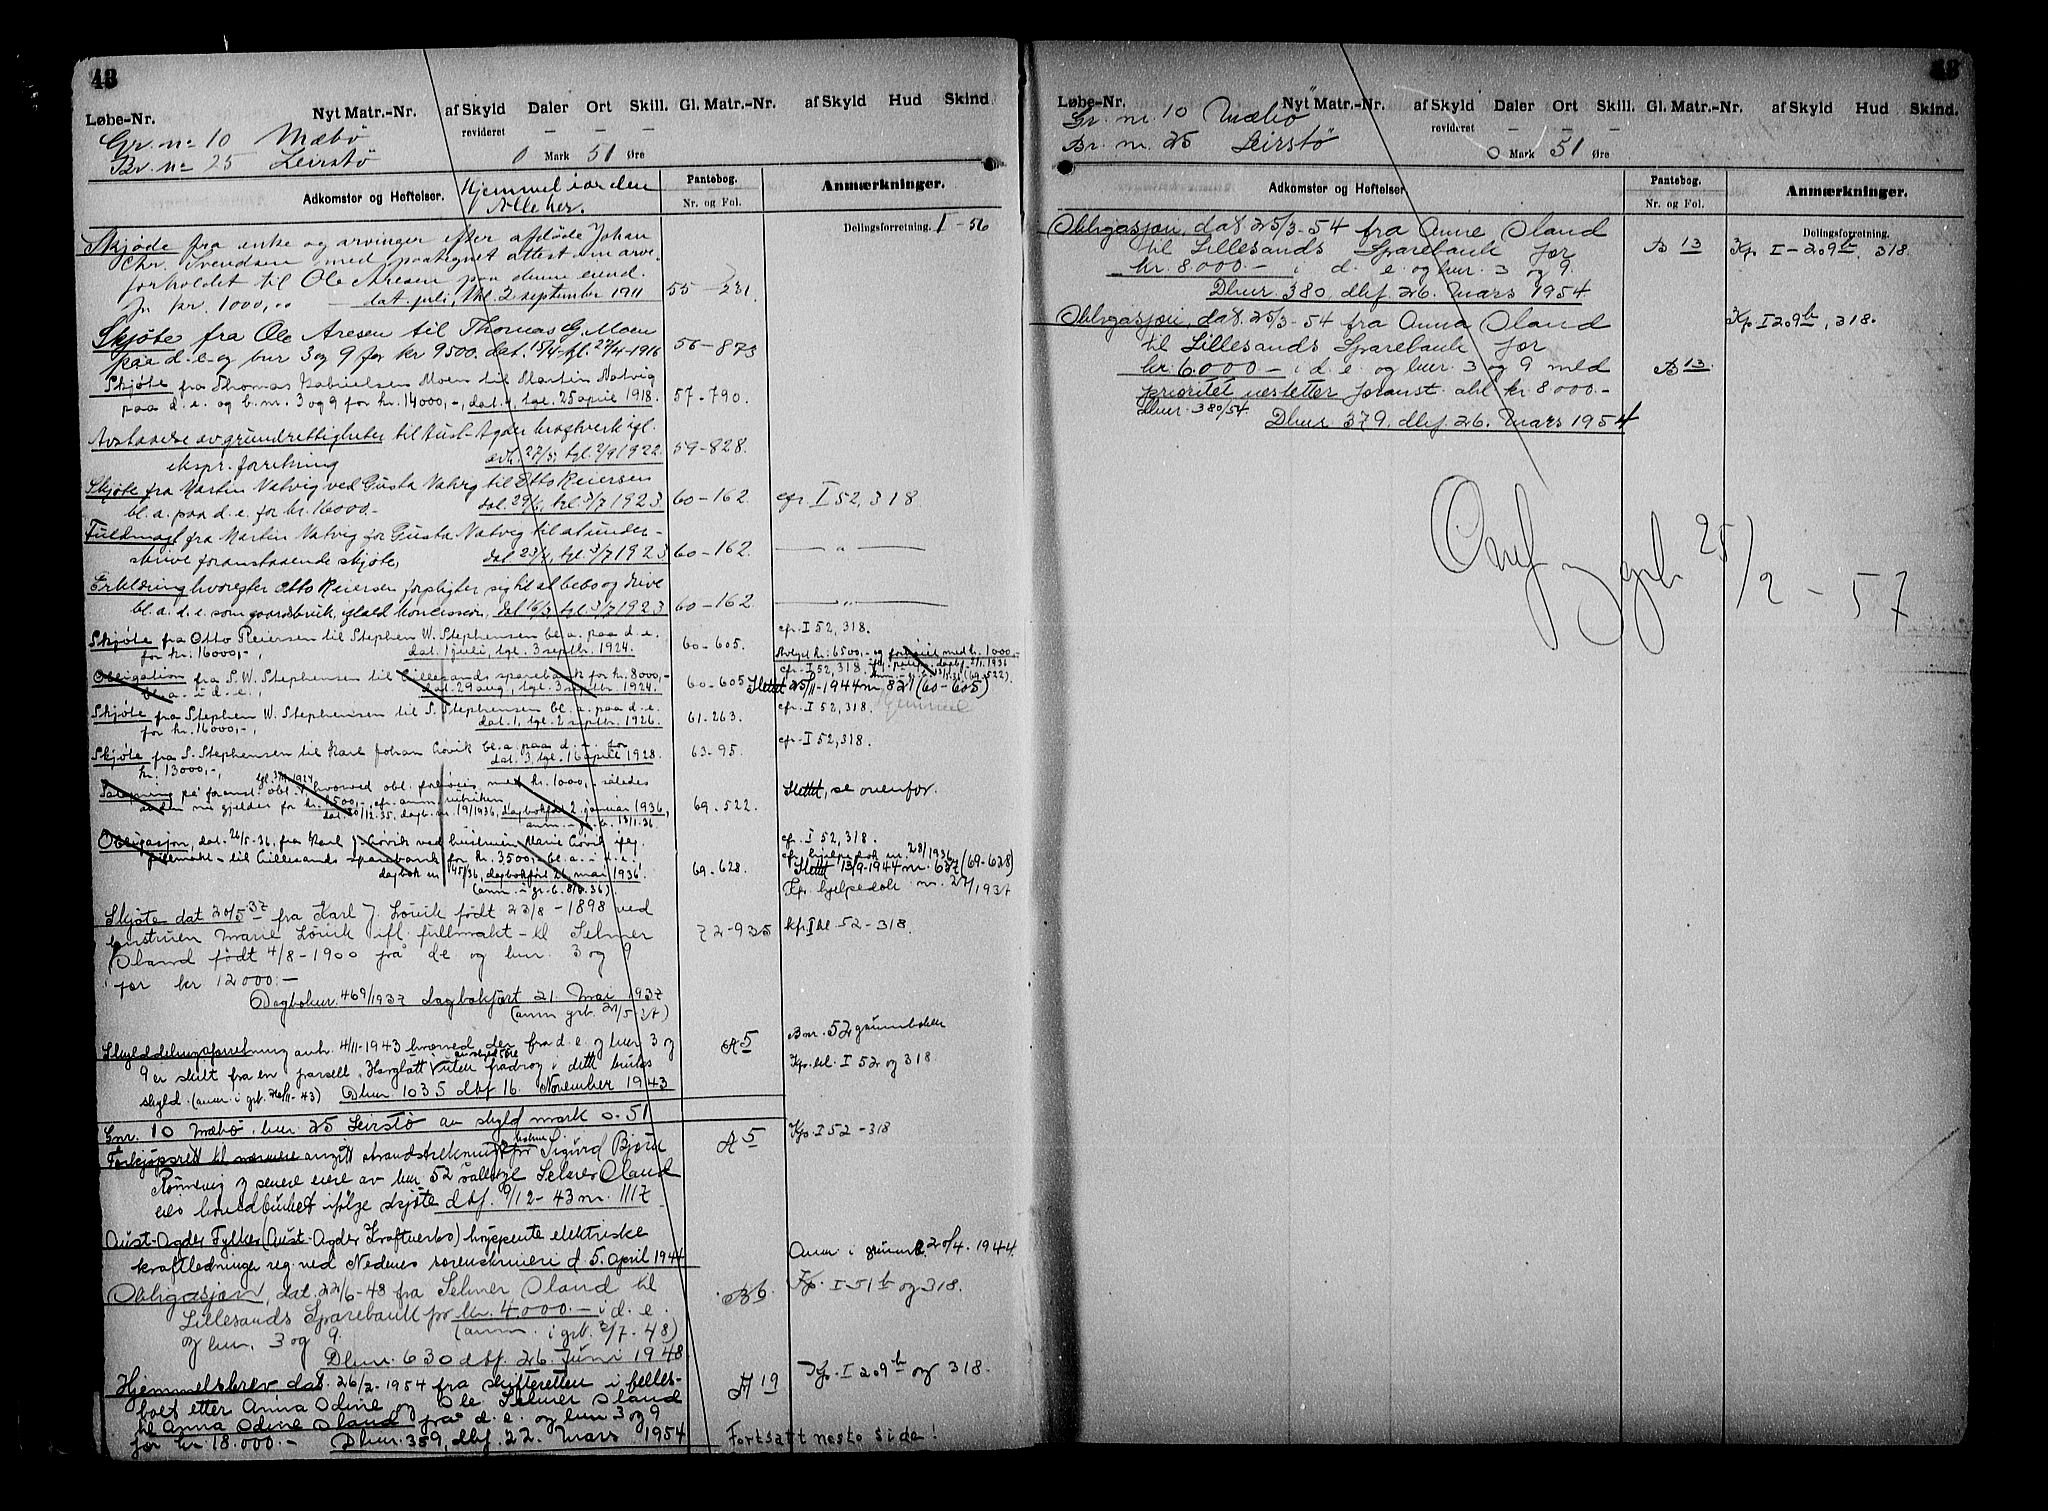 43
Løbe-Nr. Nyt Matr.-Nr. af Skyld Daler Ort Skill. Gl. Matr.-Nr. af Skyld Hud Skind.
Gr. no 10 Mæbø revideret — — —
Br. no 25 Leirstø 0 Mark 51 Øre
Adkomster og Heftelser. Pantebog. Nr. og Fol. Anmærkninger.
Delingsforretning. I - 56
Skjøde fra enke og arvinger efter afdøde Johan
Chr. Svendsen med paategnet attest om arve-
forholdet til Ole Aresen paa denne eiend.
for kr. 1000,.. dat. juli, tgl. 2 september 1911 55 - 231.
Skjøte fra Ole Aresen til Thomas G. Moen
paa d. e. og bnr 3 og 9 for kr 9500. dat. 15/4 tgl. 27/4-1916 56 - 873
Skjøte fra Thomas Gabrielsen Moen til Martin Natvig
paa d. e. og b.nr. 3 og 9 for kr. 14000,-, dat. 1, tgl. 25 april 1918. 57 - 790.
Avstaaelse av grundrettigheter til Aust-Agder kraftverk igl.
ekspr. forretning avh. 27/5, tgl. 2/9 1922. 59 - 828.
Skjøte fra Martin Natvig ved Gusta Natvig til Otto Reiersen
bl. a. paa d. e. for kr. 16000.- dat. 29/6, tgl. 3/7 1923 60 - 162. cfr. I 52, 318
Fuldmagt fra Martin Natvig for Gusta Natvig til at under-
skrive foranstaaende skjøte, dat. 23/4, tgl. 3/7 1923 60 - 162. — " —
Erklæring hvorefter Otto Reiersen forpligter sig til at bebo og drive
bl. a. d. e. som gaardsbruk, ifald koncession, dat 16/3 tgl. 3/7 1923 60 - 162. — " —
Skjøte fra Otto Reiersen til Stephen W. Stephensen bl. a. paa d. e.
for kr. 16000,-, dat. 1 juli, tgl. 3 septbr. 1924. 60 - 605. cfr. I 52, 318.
Obligation fra S. W. Stephensen til Lillesands sparebank for kr. 8000,-
bl. a. i d. e., dat. 29 aug., tgl. 3 septbr. 1924. 60 - 605 Slettet 25/11-1944 nr. 821 (60-605)
Skjøte fra Stephen W. Stephensen til S. Stephensen bl. a. paa d. e.
for kr. 16000,-, dat. 1, tgl. 2 septbr. 1926. 61 - 263. cfr. I 52, 318.
Skjøte fra S. Stephensen til Karl Johan Løvik bl. a. paa d. e. for
kr. 13000,-, dat. 3, tgl. 16 april 1928. 63 - 95. cfr. I 52, 318.
Påtegning på foranst. obl. tgl. 3/9 1924, hvorved obl. forhøies med kr. 1000,- således
at den nu gjelder for kr. 7500,-, cfr. anm. rubrikken,
dat. 30/12.35, dagb. nr. 19/1936, dagbokført 2. januar 1936, 69 - 522. Slettet, se ovenfor.
anm. i g. b. 13/1.36.
Obligasjon, dat. 26/5-36, fra Karl J. Løvik ved hustruen Marie Løvik iflg.
fullmakt - til Lillesands sparebank for kr. 3500,- bl. a. i d. e. cfr. I 52, 318.
dagbok nr 445/36, dagbokført 26. mai 1936. 69 - 628. Slettet 13/9-1944 nr. 632 (69-628)
(anm. i gr. b. 8/6.36) Kfr. hjelpedok nr. 27/1937
Skjøte dat 20/5 37 fra Karl J. Løvik født 23/8 - 1898 ved
hustruen Marie Løvik ifl. fullmakt - til Selmer
Øland født 4/8 - 1900 på de og bnr. 3 og 9 72 - 935 kfr. I bl 52 - 318.
for kr 12000.-
Dagboknr. 469/1937 dagbokført 21. Mai 1937
(anm grb. 24/5-37)
Skylddelingsforretning avh. 4/11-1943 hvorved der fra d. e. og bnr 3 og A 5 Bnr. 52 grunnboken
9 er skilt fra en parsell, Haraslått uten fradrag i dette bruks Kfr. bl. I 52 og 318
skyld. (anm. i grb. 26/11-43) Dbnr. 1035 dbf. 16. November 1943
Gnr. 10 Mæbø, bnr. 25 Leirstø av skyld mark 0.51
Forkjøpsrett til nærmere angitt strandstrekning for Sigurd Bjørn A 5 Kfr. I 52 - 318
Rønnevig og senere eiere av bnr. 52 Selmer Øland
hovedbruket ifølge skjøte dbf. 9/12-43 nr. 1117
Aust-Agder Fylkes (Aust-Agder Kraftverks) høyspente elektriske
kraftledninger reg. ved Nedenes sorenskriveri d 5. april 1944 Anm. i grunnb. 20/4.1944.
Obligasjon, dat. 22/6-48 fra Selmer Øland til B 6. Kfr. I 51 b og 318.
Lillesands Sparebank for kr. 4.000.- i d. e.
og bnr. 3 og 9. (anm. i grb. 3/7-48)
Dbnr. 630 dbf. 26 Juni 1948
Hjemmelsbrev dat. 26/2-1954 fra skifteretten i felles- A 19 Kfr. I 209 b og 318.
boet etter Anna Odine og Ole Selmer Øland
til Anna Odine Øland på d. e. og bnr 3 og 9
for kr 18.000.- Dbnr. 359, dbf. 22. Mars 1954 Fortsatt neste side!
43
Løbe-Nr. Nyt Matr.-Nr. af Skyld Daler Ort Skill. Gl. Matr.-Nr. af Skyld Hud Skind.
Gr. nr. 10 Mæbø revideret — — —
Br. nr. 25 Leirstø 0 Mark 51 Øre
Adkomster og Heftelser. Pantebog. Nr. og Fol. Anmærkninger.
Delingsforretning.
Obligasjon, dat. 25/3-54 fra Anne Øland
til Lillesands Sparebank for B 13 Kfr. I - 209 b, 318.
kr. 8.000.- i d. e. og bnr. 3 og 9.
Dbnr. 380, dbf. 26. Mars 1954.
Obligasjon, dat. 25/3-54 fra Anna Øland Kfr. I 209 b, 318.
til Lillesands Sparebank for
kr. 6.000.- i d. e. og bnr. 3 og 9 med B 13.
prioritet nestetter foranst. obl kr. 8.000.-
Dbnr. 380/54
Dbnr. 379, dbf. 26. Mars 1954
Overf. grb. 25/2 - 57